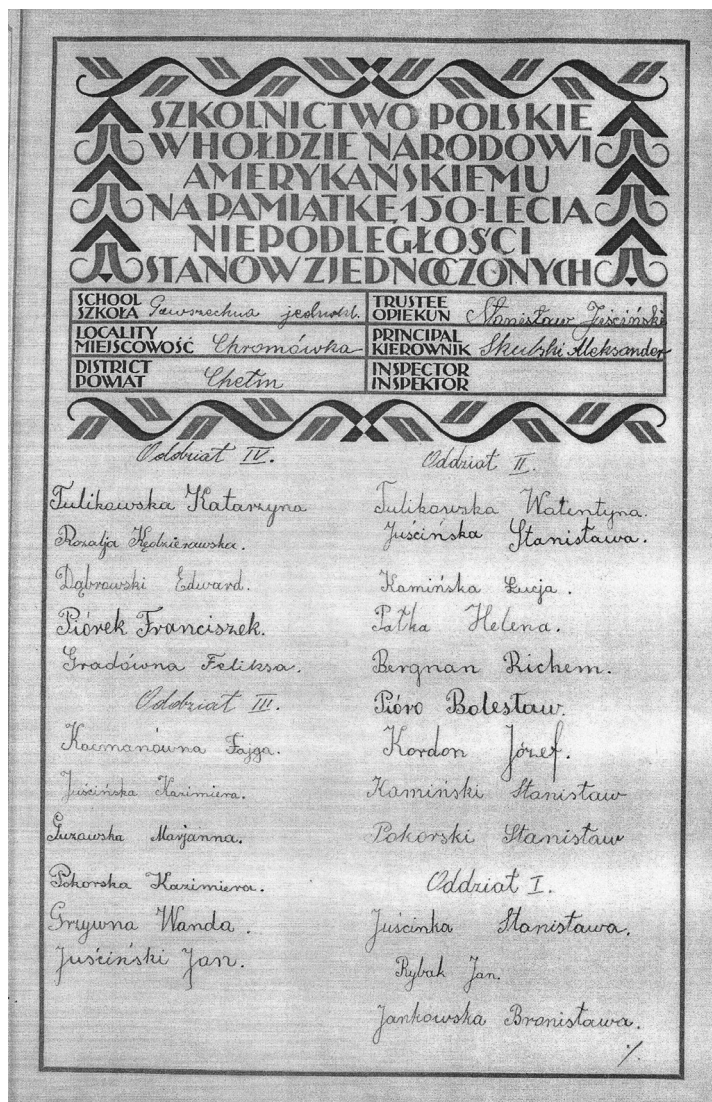 SZKOLNICTWO POLSKIE
W HOŁDZIE NARODOWI
AMERYKAŃSKIEMU
NA PAMIĄTKĘ 150-LECIA
NIEPODLEGŁOŚCI
STANÓW ZJEDNOCZONYCH
SCHOOL
SZKOŁA Powszechna jednokl.
TRUSTEE
OPIEKUN Stanisław Juściński
LOCALITY
MIEJSCOWOŚĆ Chromówka
PRINCIPAL
KIEROWNIK Skulski Aleksander
DISTRICT
POWIAT Chełm
INSPECTOR
INSPEKTOR
Oddział IV.
Tulikowska Katarzyna
Rozalja Kędzierawska.
Dąbrowski Edward.
Piórek Franciszek.
Gradówna Feliksa.
Oddział III.
Kacmanówna Fajga.
Juścińska Kazimiera.
Guzawska Marjanna.
Pokorska Kazimiera.
Grzywna Wanda.
Juściński Jan.
Oddział II.
Tulikowska Walentyna.
Juścińska Stanisława.
Kamińska Łucja.
Pałka Helena.
Bergnan Richem.
Pióro Bolesław.
Kordon Józef.
Kamiński Stanisław
Pokorski Stanisław
Oddział I.
Juścinka Stanisława.
Rybak Jan.
Jankowska Bronisława.
./.